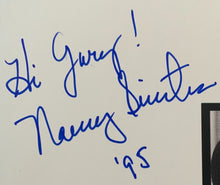 Hi Gary!
Nancy Sinatra
'95